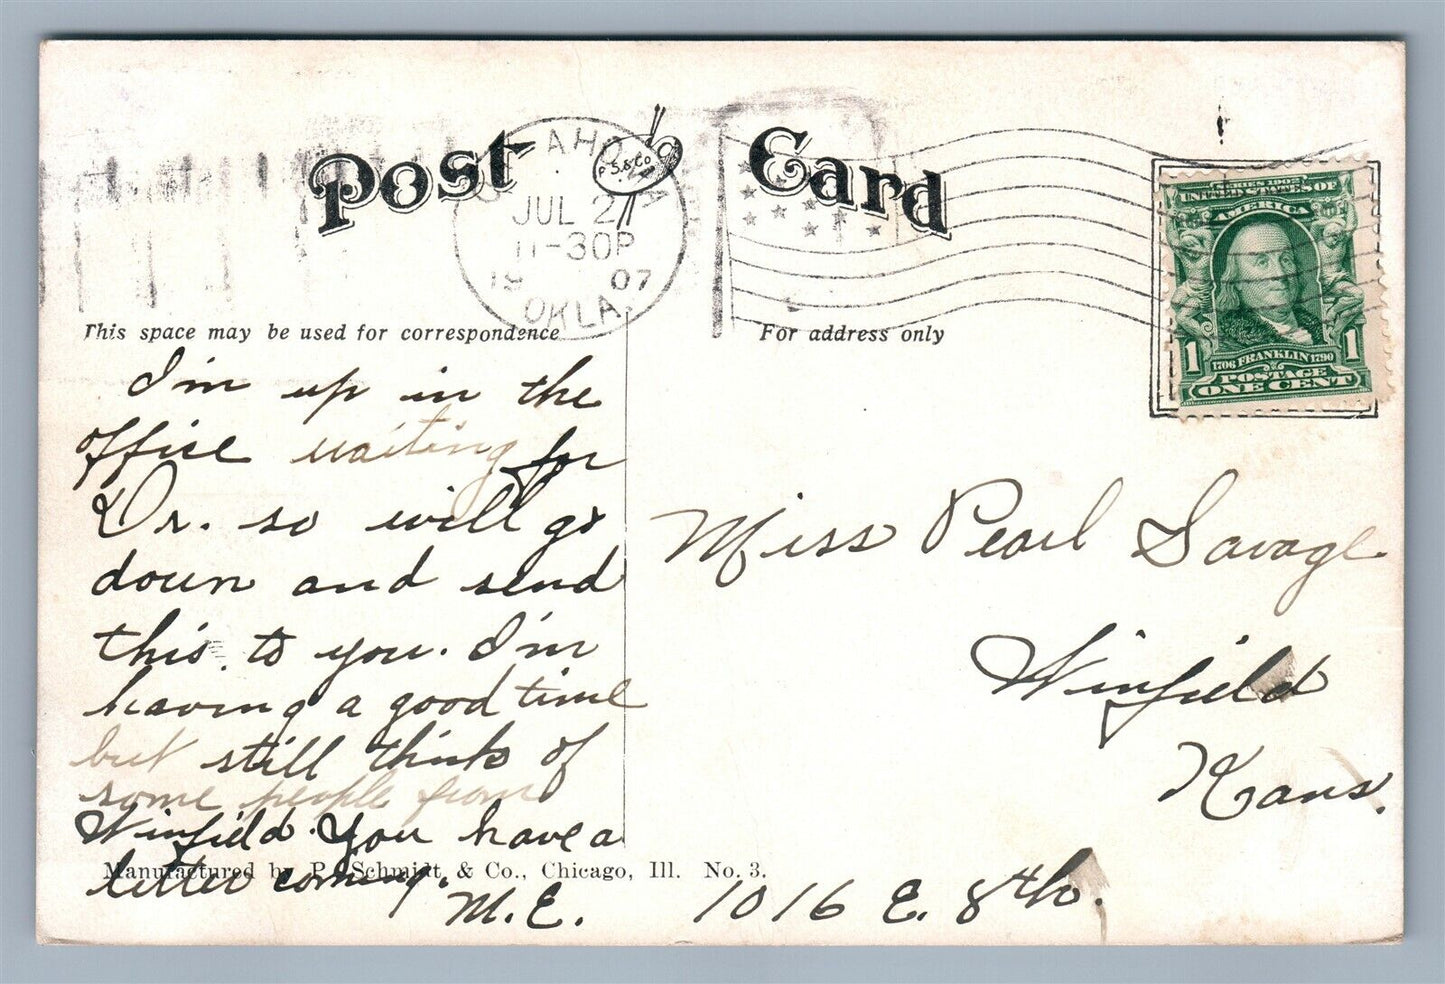 Post Card
P. S. & Co
OKLAHOMA
JUL 2
11-30P
1907
OKLA.
SERIES 1902
UNITED STATES OF
AMERICA
1 1706 FRANKLIN 1790 1
POSTAGE
ONE CENT
This space may be used for correspondence
For address only
I'm up in the
office waiting for
Dr. so will go
down and send
this to you. I'm
having a good time
but still think of
some people from
Winfield. You have a
letter coming.
M.E.
Miss Pearl Savage
Winfield
Kans.
1016 E. 8th.
Manufactured by P. Schmidt & Co., Chicago, Ill. No. 3.